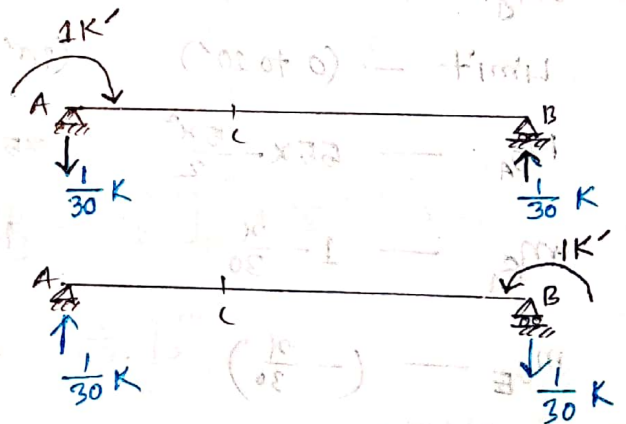 1K'
A
C
B
1/30 K
1/30 K
1K'
A
C
B
1/30 K
1/30 K